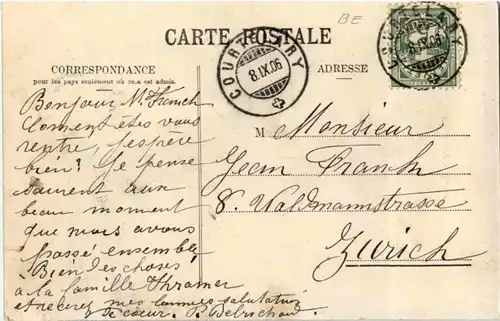 BE
CARTE POSTALE
COURTELARY
8.IX.06
COURTELARY
8.IX.06
CORRESPONDANCE
pour les pays seulement où ce.a est admis.
ADRESSE
Bonjour M.
Coment êtes vous
rentre, j'espère
bien? Je pense
souvent aux
beau moment
que nous avons
passé ensemble
Bien des choses
a la famille
et recevez mes bonnes salutations
de coeur. P.
M Monsieur
Jean Franck
8. Waldmannstrasse
Zurich